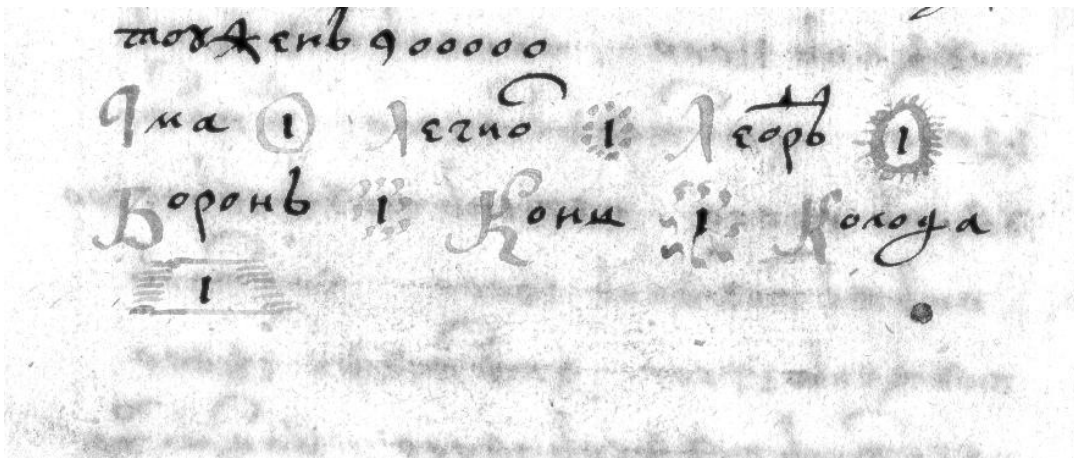 тоуженъ 900000
Тма 1 Легио 1 Леорь 1
Воронъ 1 Конц 1 Колода
1